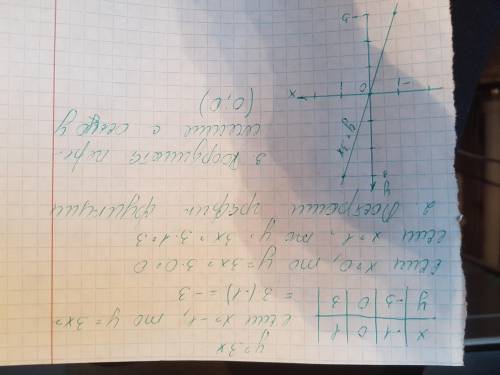 y=3x
x | -1 | 0 | 1
y | -3 | 0 | 3
если x=-1, то y=3x=
=3(-1)=-3
если x=0, то y=3x=3·0=0
если x=1, то y=3x=3·1=3
2. Построим график функции
3. Координата пере-
сечение с осью y
(0;0)
y
3
y=3x
-1
0
x
-3